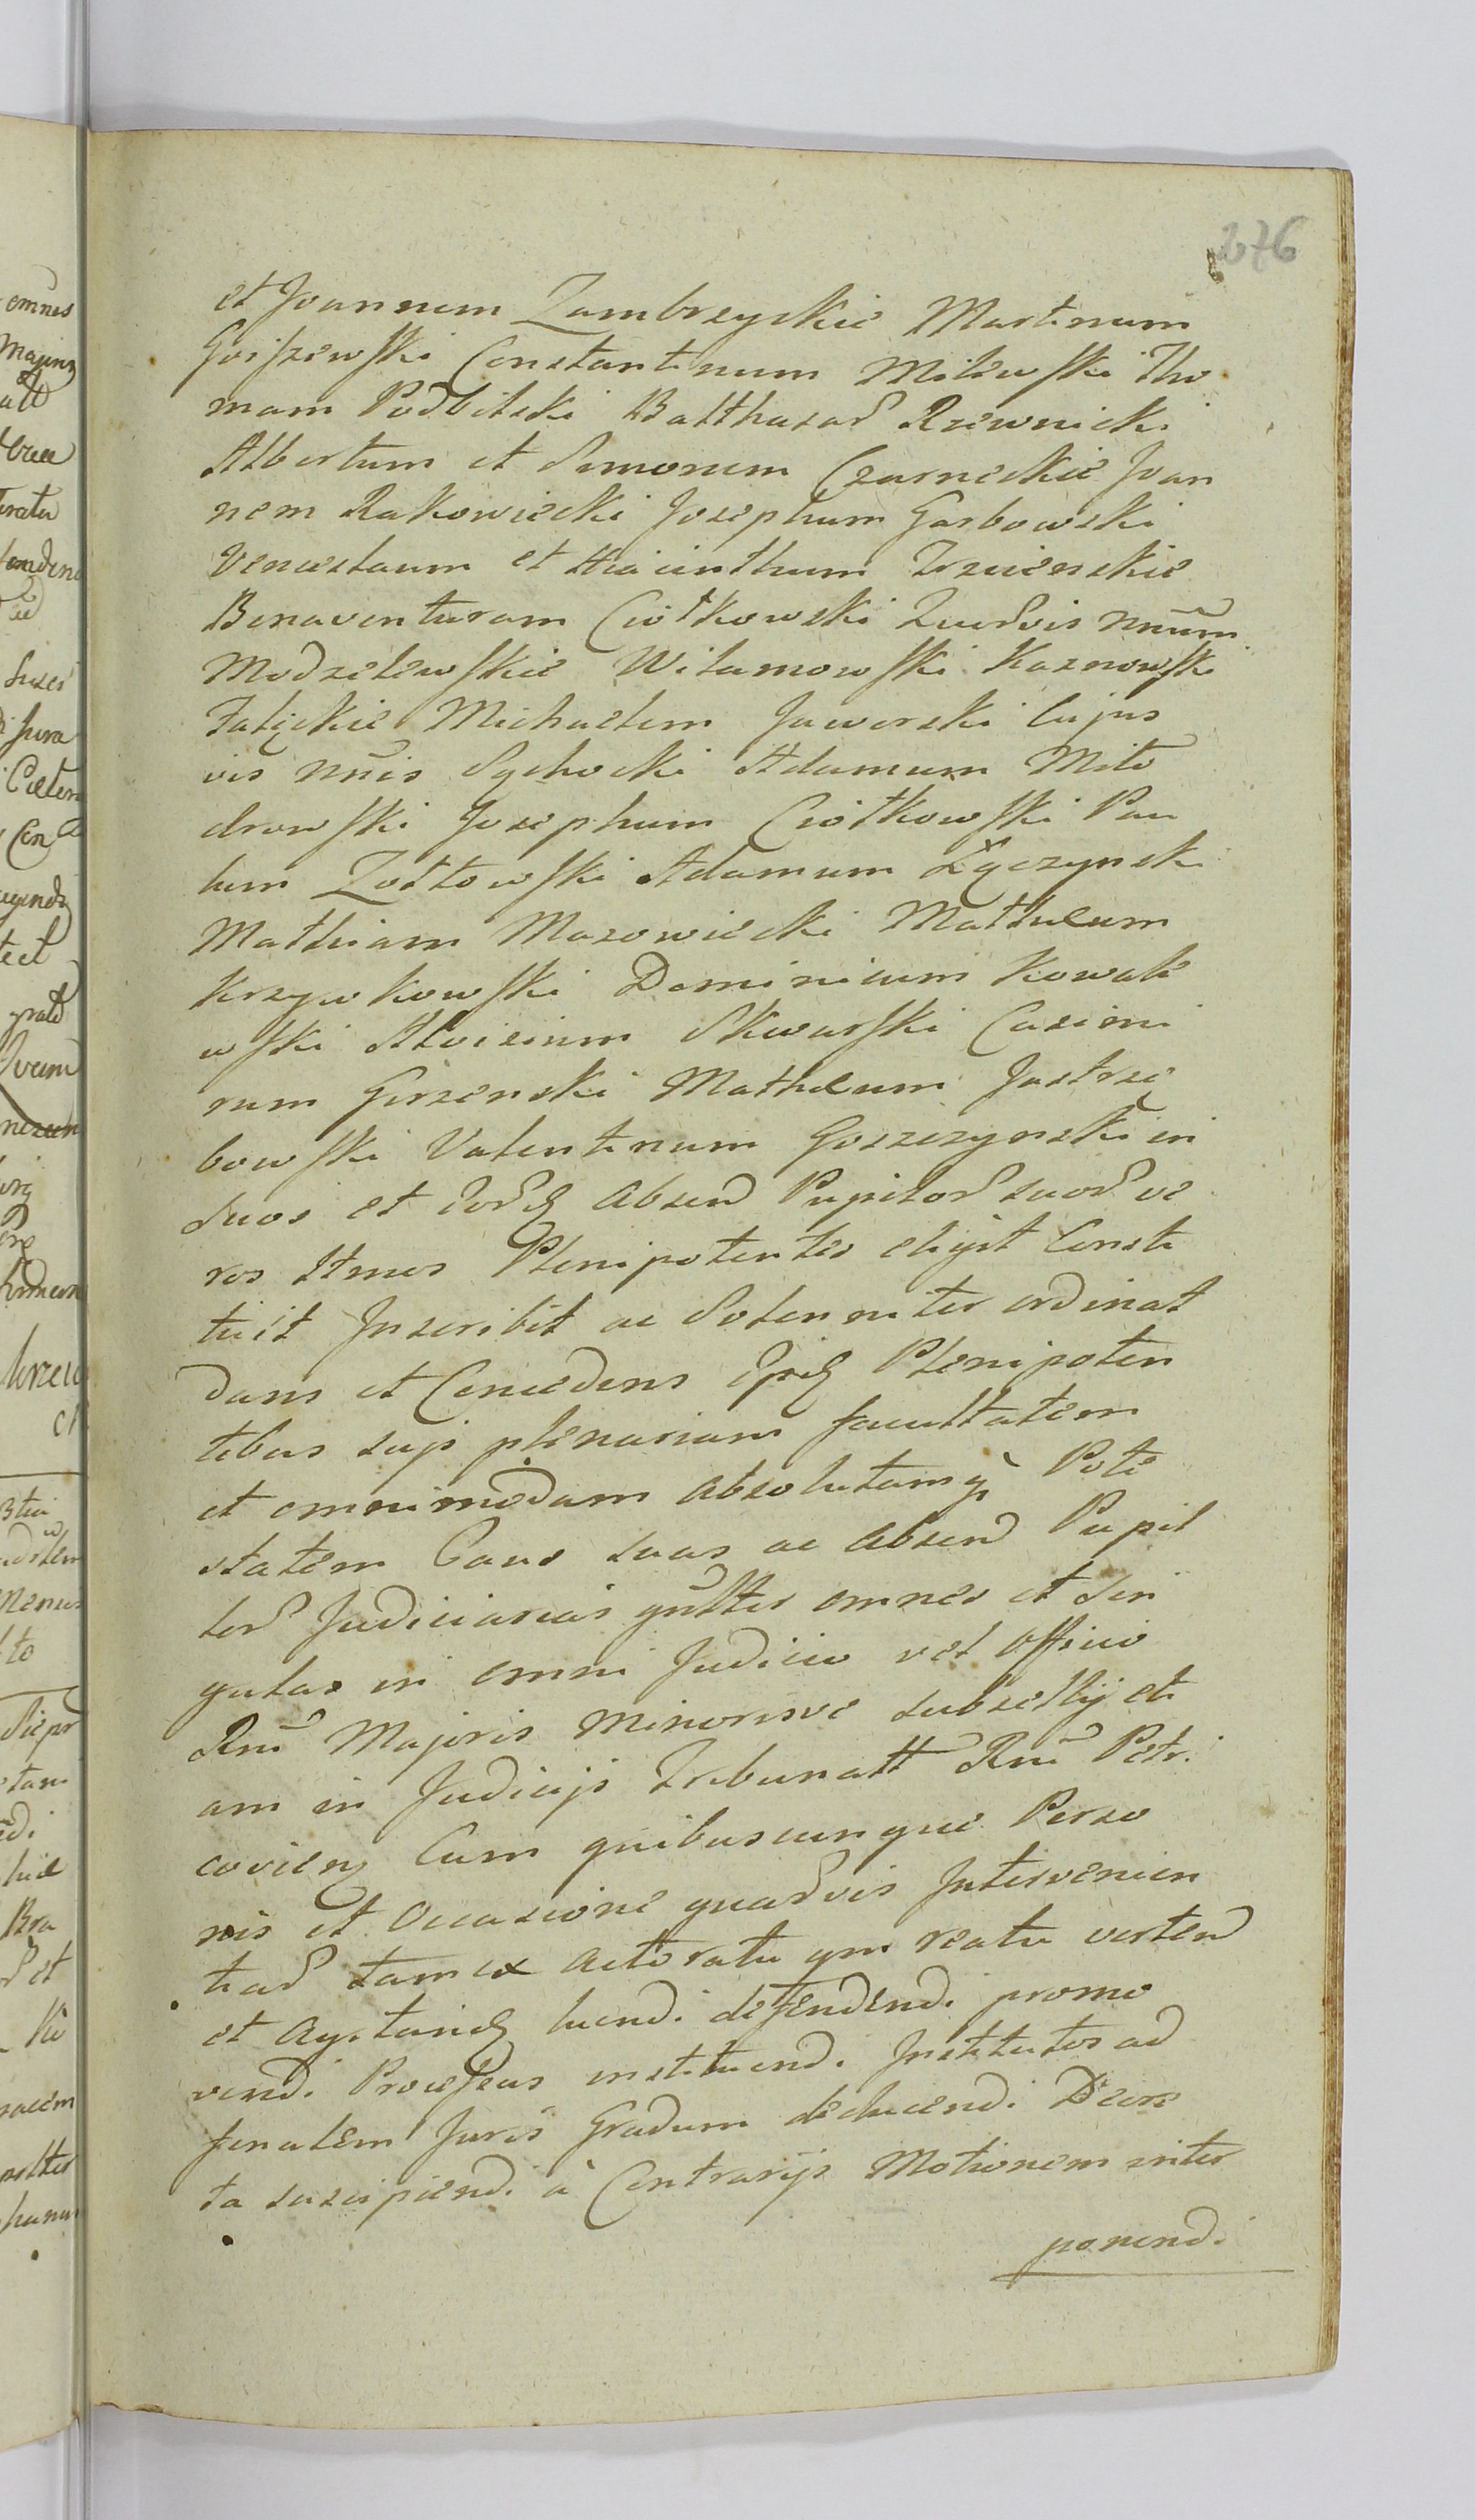 276
et Joannem Zambrzyckie Martinum
Goiszewski Constantinum Milewski Tho
mam Podbilski Balthasar Rzewnicki
Albertum et Simonem Czarneckie Joan
nem Rakowiecki Josephum Garbowski
Venceslaum et Hiacinthum Trzcienskie
Bonaventuram Ciołkowski Quorvis nnum
Modzelewskie Wilamowski Kaznowski
Falęckie Michaelem Jaworski Cujus
vis nnis Sychocki Adamum Milo
drowski Josephum Ciołkowski Pau
lum Zołtowski Adamum Łączynski
Mathiam Mazowiecki Matheum
Krzywkowski Dominicum Kowale
wski Aloisium Skwarski Casimi
rum Girzenski Matheum Jastrzę
bowski Valentinum Goszczynski in
Suos et Eord Absen Pupilor suor ve
ros Ltmos Plenipotentes eligit Consti
tuit Inscribit ac Solenniter ordinat
dans et Concedens Ipsis Plenipoten
tibus suis plenariam facultatem
et omnimodam absolutamq Pote
statem Caus suas ac absen Pupil
lor Judiciarias gnlter omnes et sin
gulas in omni Judicio vel Officio
Rni Majoris Minorisve subsellij eti
am in Judicijs Tribunali Rni Petri
covien Cum quibuscunque Perso
nis et Occasione quarvis Intervenien
tiar tam ex actoratu qm reatu verten
et Agitand luendi defendendi promo
vendi Processus instituendi Institutos ad
finalem Juris Gradum deducendi Decre
ta suscipiendi à Contrarijs Motionem inter
ponendi